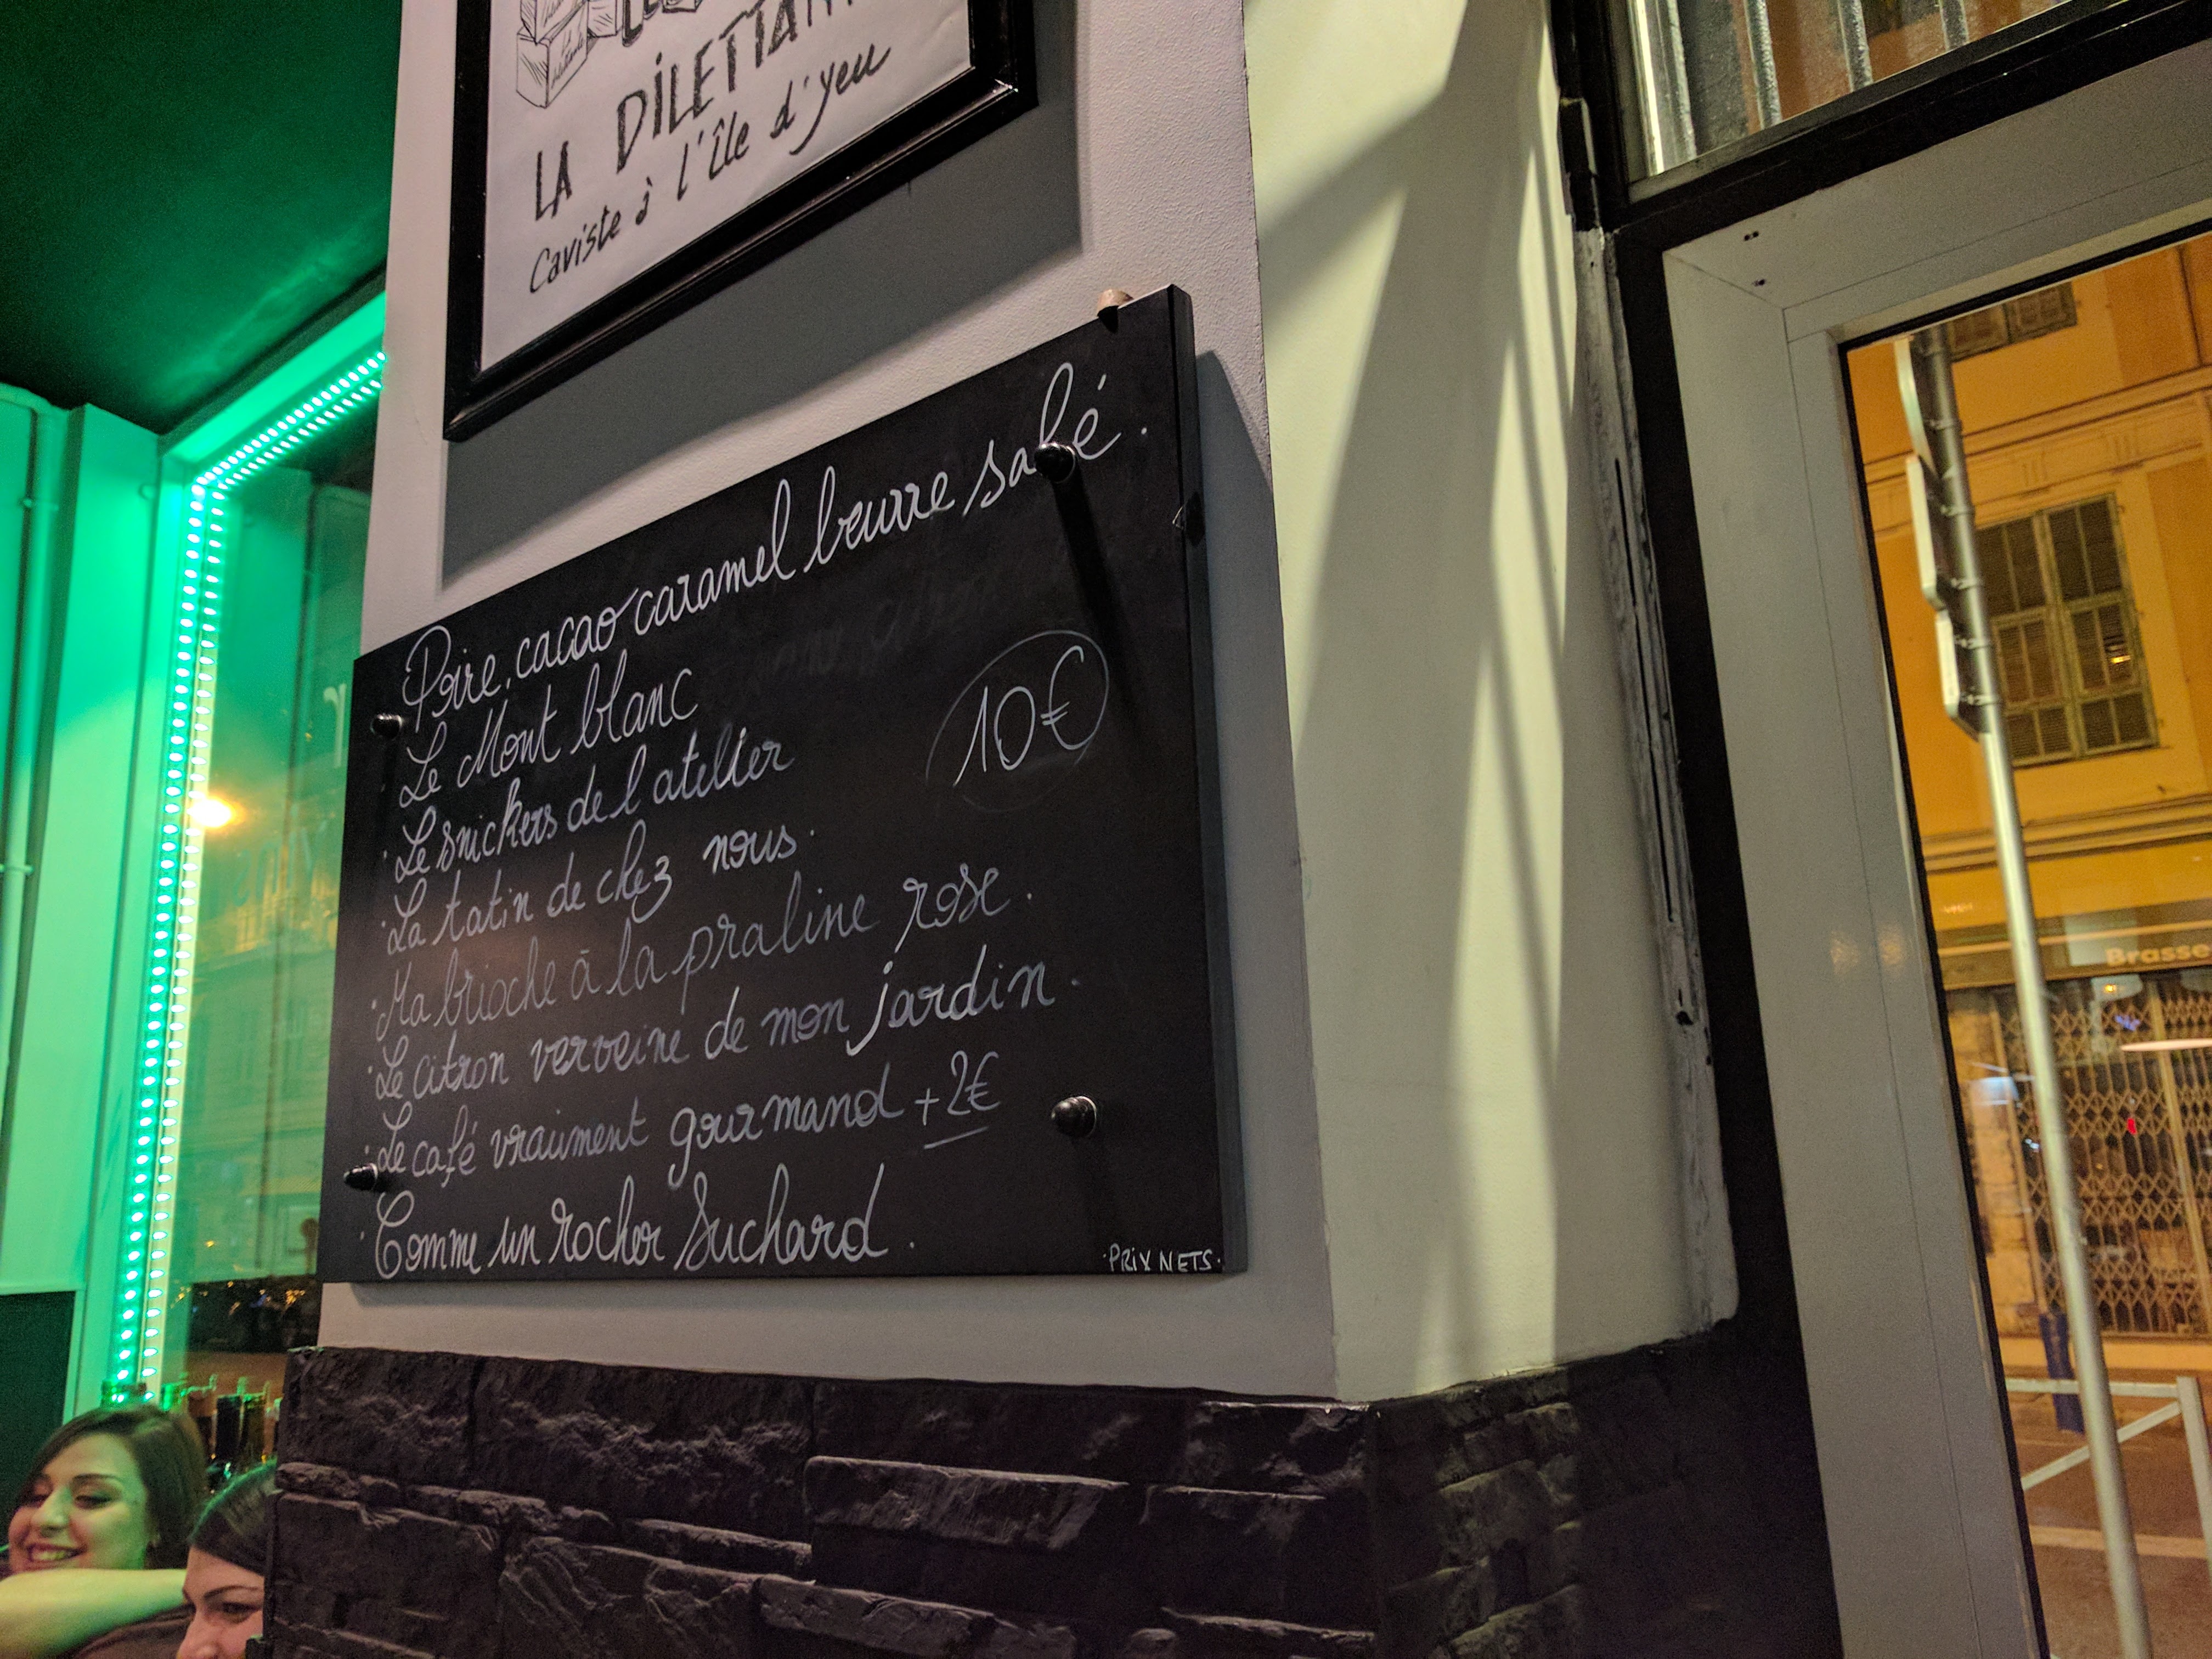 LA DILETTA
Caviste à l'île d'yeu
Poire, cacao caramel beurre salé.
Le Mont blanc
10€
· Le snickers de l'atelier
· La tatin de chez nous.
· Ma brioche à la praline rose.
· Le citron verveine de mon jardin.
· Le café vraiment gourmand +2€
· Comme un rocher Suchard.
·PRIX NETS·
Brasse